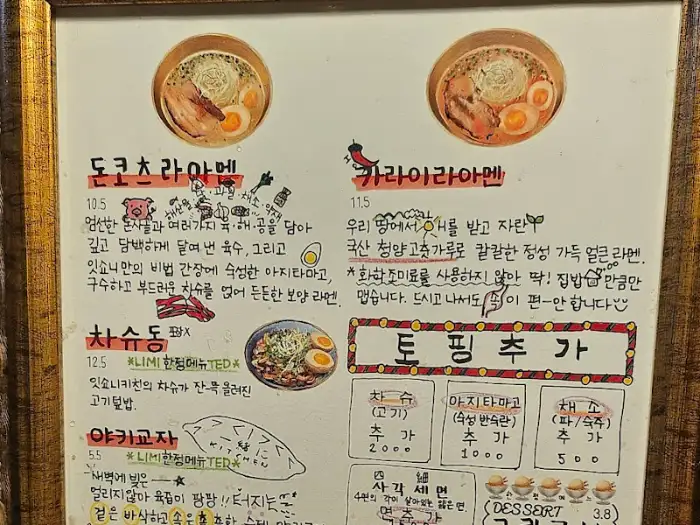 돈코츠라아멘
육·과일·채소·약재
해산물
10.5
엄선한 돈사골과 여러가지 육·해·공을 담아
깊고 담백하게 달여낸 육수, 그리고
잇쇼니만의 비법 간장에 숙성한 아지타마고,
구수하고 부드러운 차슈를 얹어 든든한 보양 라멘.
차슈동
포장X
12.5 *LIMI한정메뉴TED*
잇쇼니키친의 차슈가 잔-뜩 올려진
고기덮밥.
야키교자
5.5 *LIMI한정메뉴TED*
새벽에 빚은
얼리지않아 육즙이 팡팡 터지는
겉은 바삭하고 속은
카라이라아멘
11.5
우리 땅에서 해를 받고 자란
국산 청양고춧가루로 칼칼한 정성 가득 얼큰 라멘.
*화학조미료를 사용하지 않아 딱! 집밥 만큼만
맵습니다. 드시고 나서도 속이 편-안 합니다
토핑추가
차슈
(고기)
추가
2000
아지타마고
(숙성 반숙란)
추가
1000
채소
(파/숙주)
추가
500
四 細
사각세면
4면의 각이 살아있는 얇은 면.
면추가
DESSERT
3.8